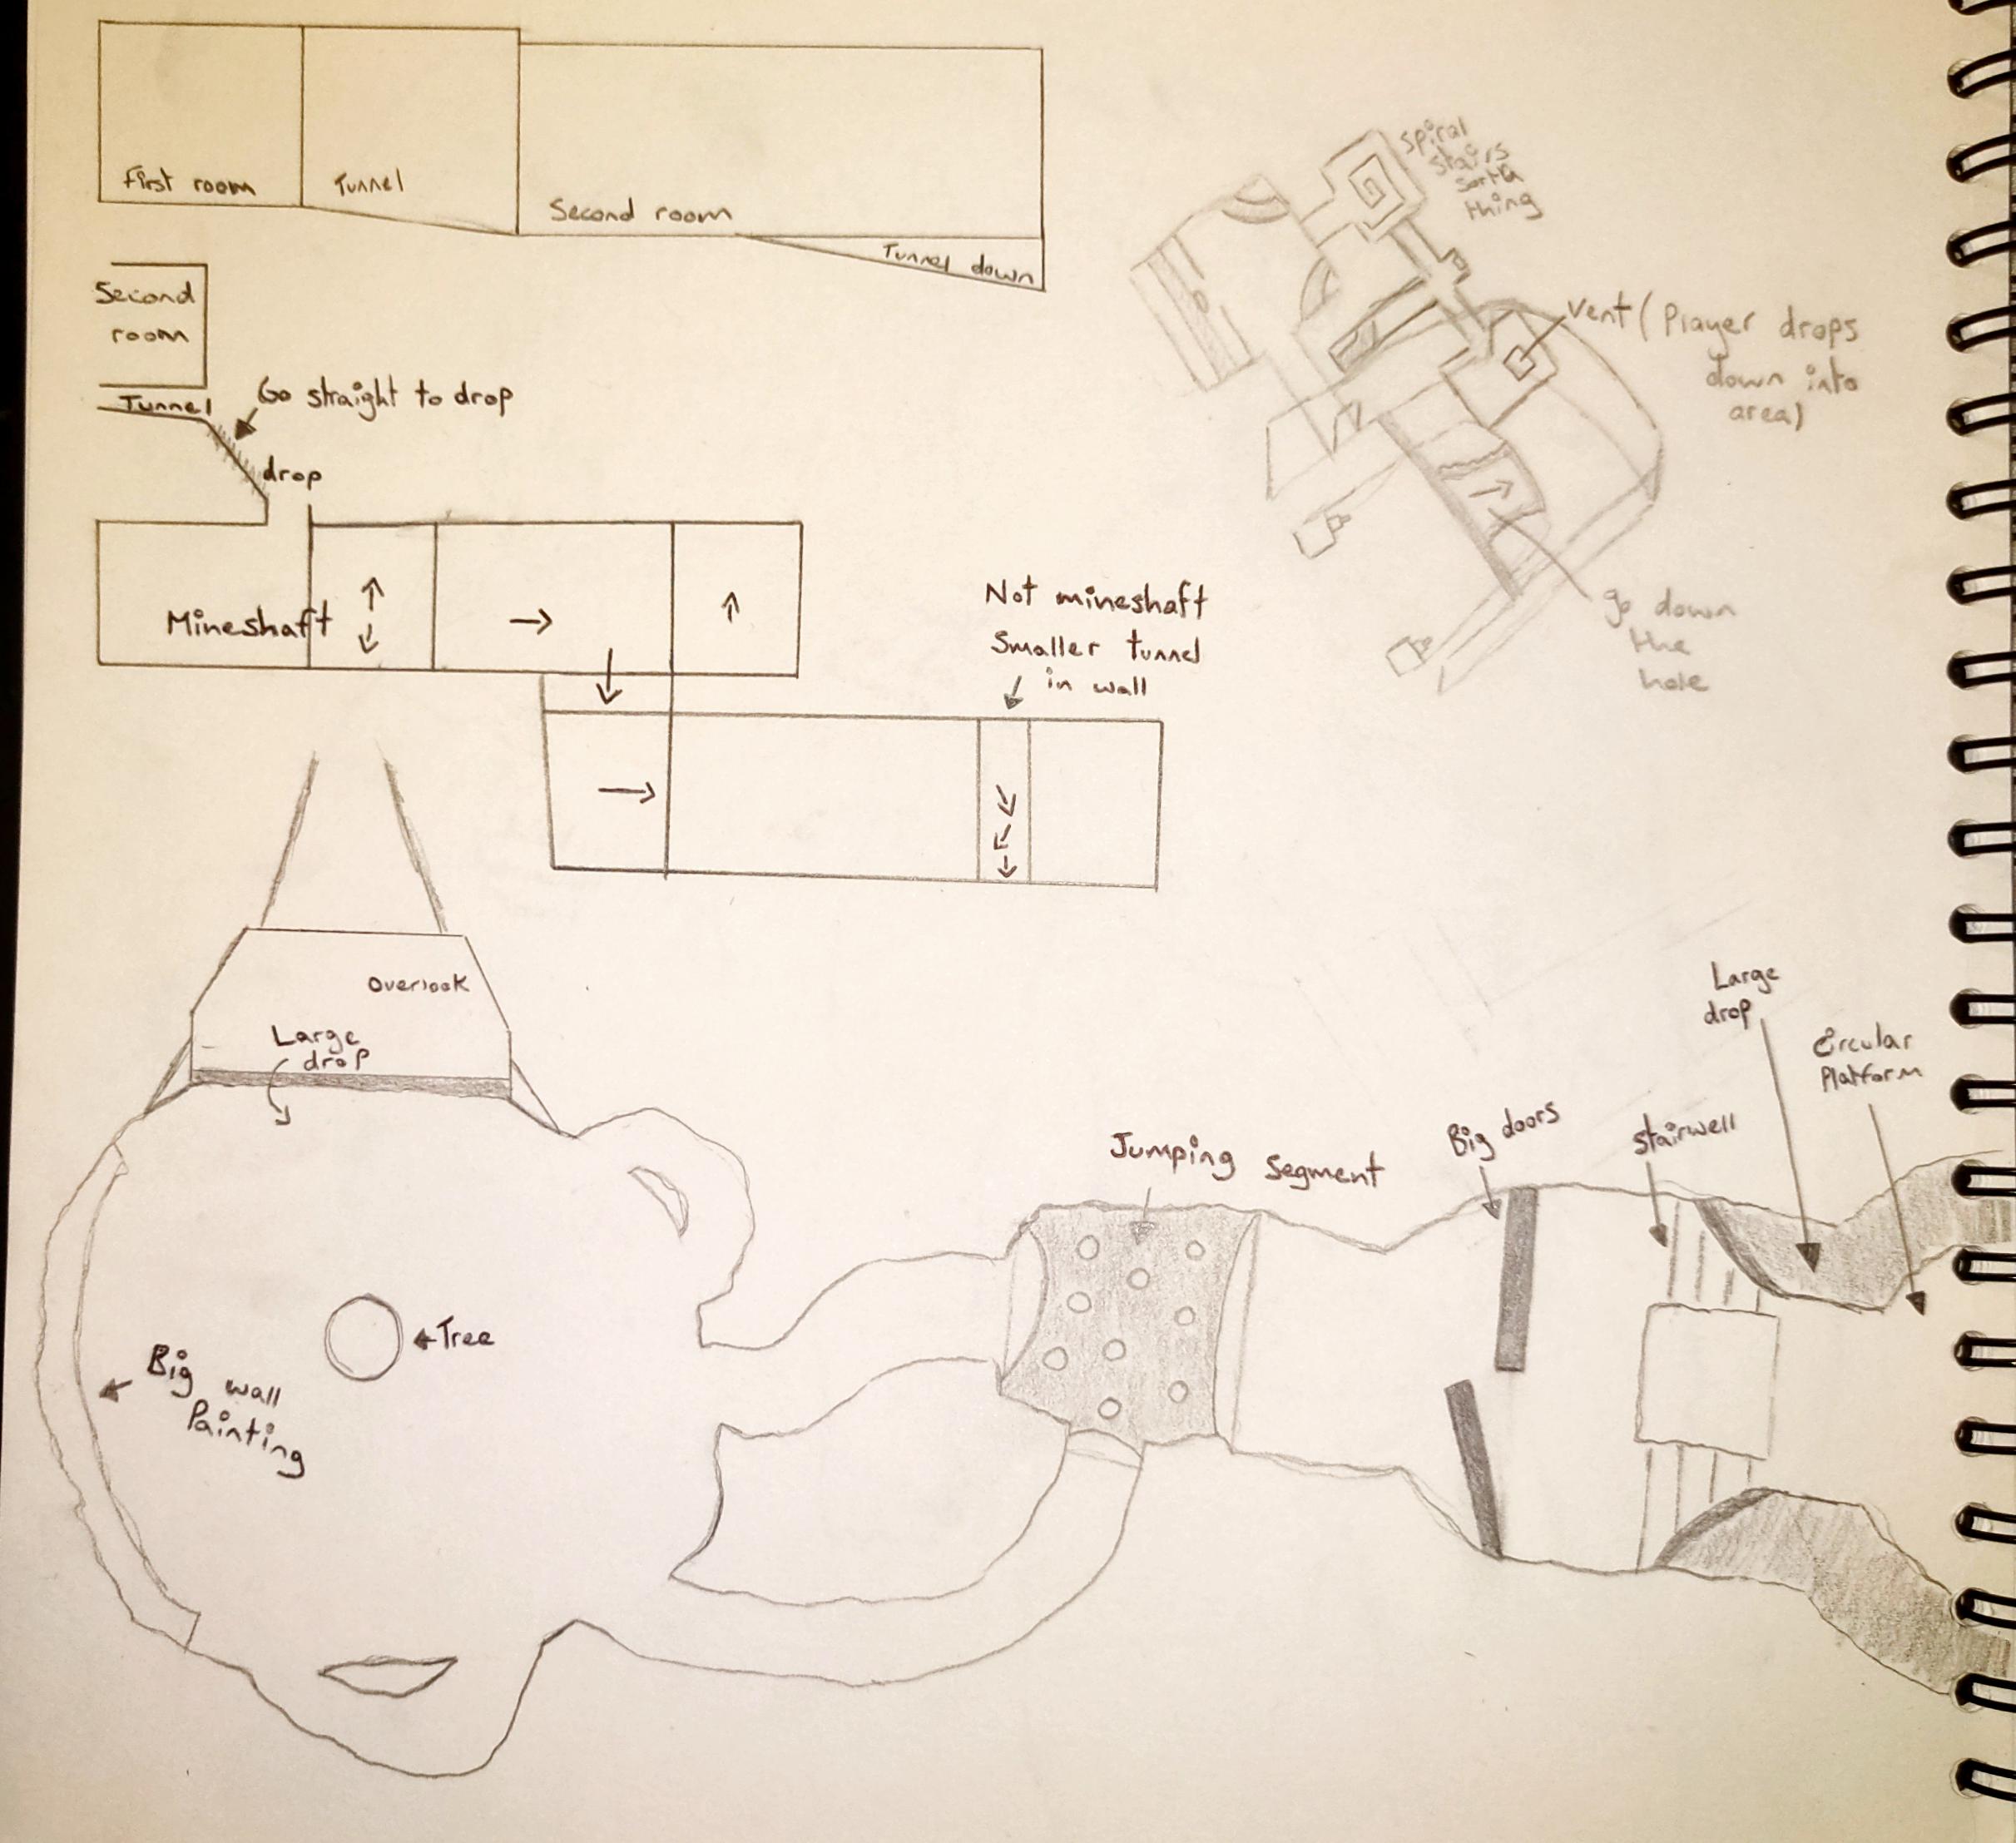 First room
Tunnel
Second room
Tunnel down
Second
room
Tunnel
Go straight to drop
drop
Mineshaft
Not mineshaft
Smaller tunnel
in wall
spiral
stairs
sorta
thing
vent ( Player drops
down into
area)
go down
the
hole
Overlook
Large
drop
Tree
Big wall
Painting
Jumping Segment
Big doors
Stairwell
Large
drop
Circular
Platform